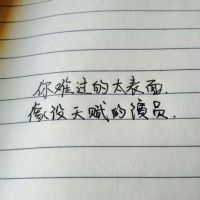 你难过的太表面.
像没天赋的演员.